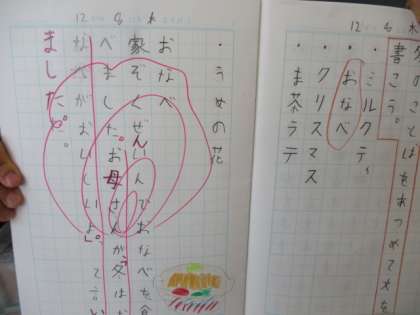 12 6 木
冬のことばをあつめて文を
書こう。
・ミルクティ
・おなべ
・クリスマス
・ま茶ラテ
12 6 木
・うめの花
おなべ
家ぞくぜんいんでおなべを食
べました。お母さんが「冬はお
なべがおいしいよ。」って言い
ました。